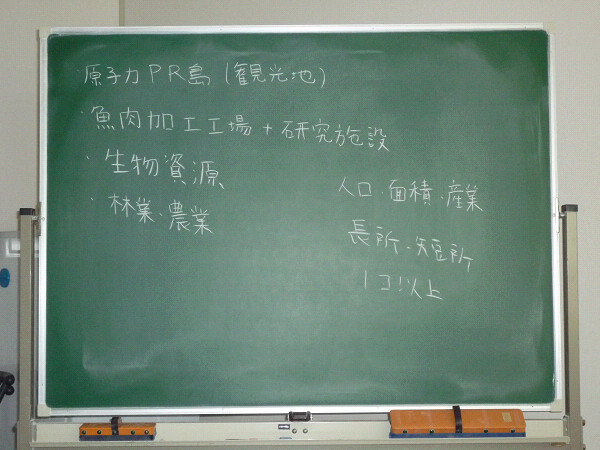 原子力PR島(観光地)
・魚肉加工工場+研究施設
・生物資源
・林業・農業
人口・面積・産業
長所・短所
1コ以上